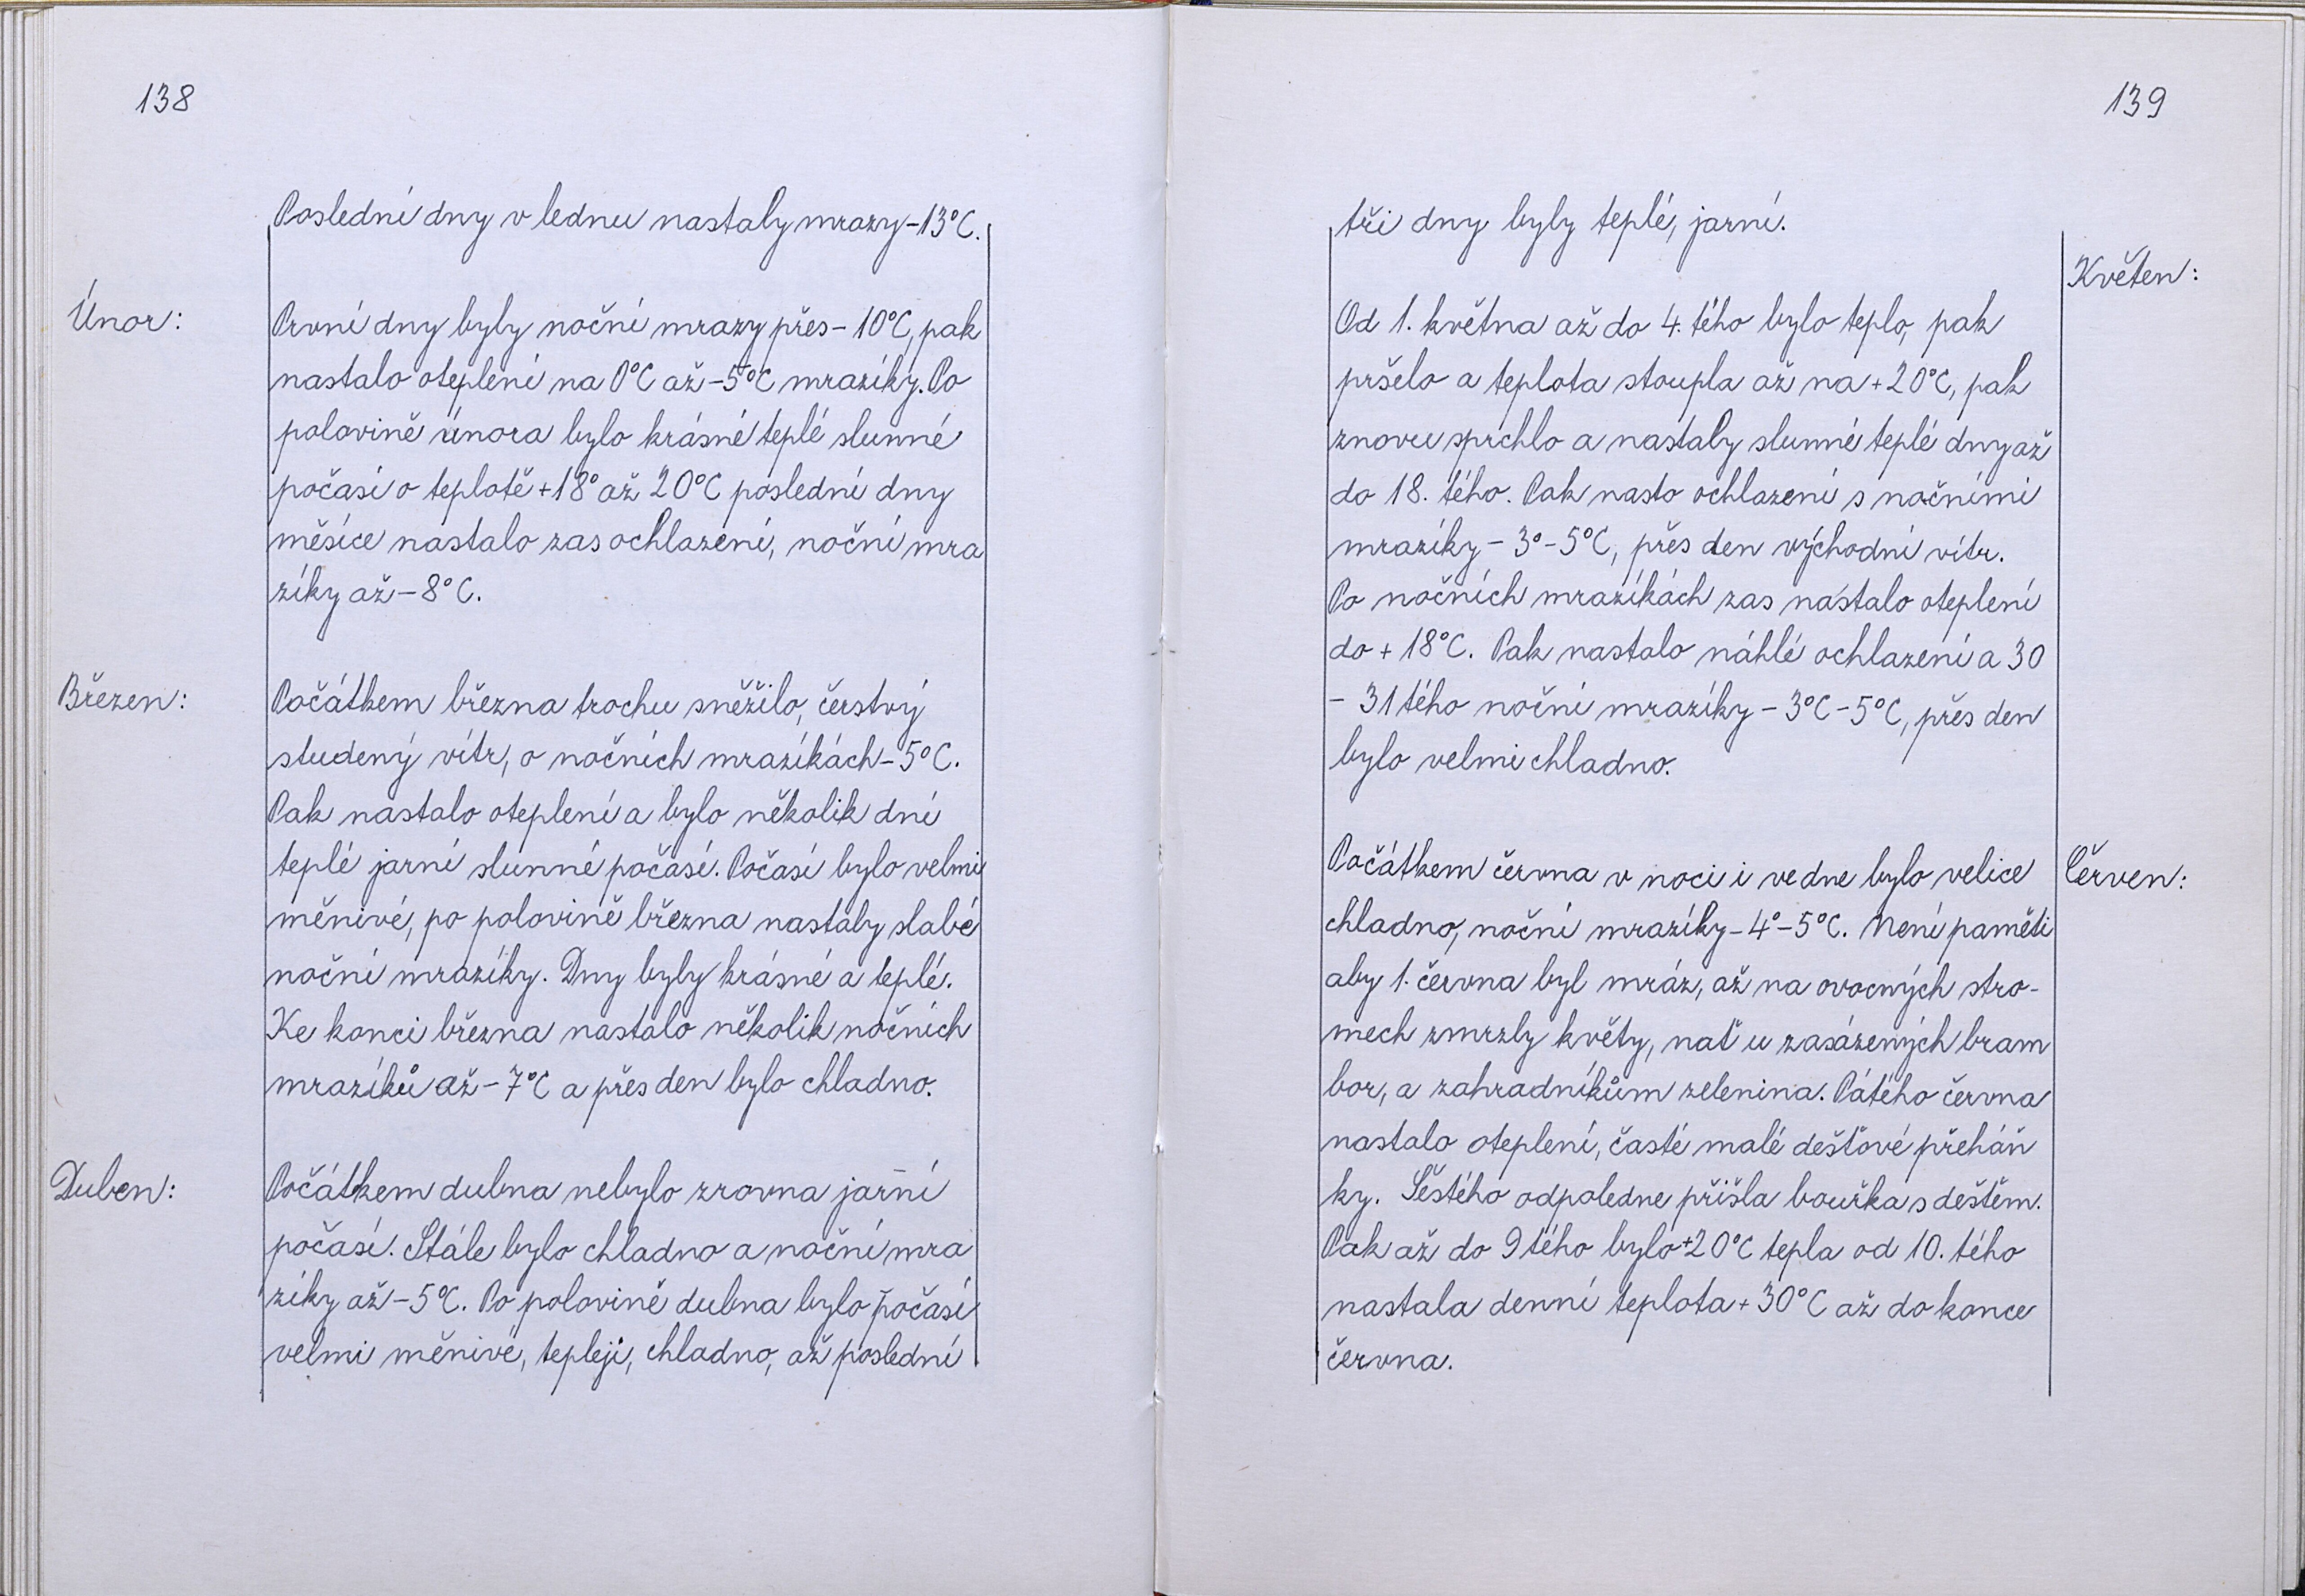 138
Poslední dny v lednu nastaly mrazy -13°C.
Únor:
První dny byly noční mrazy přes -10°C, pak
nastalo oteplení na 0°C až -5°C mrazíky. Po
polovině února bylo krásné teplé slunné
počasí o teplotě +18° až 20°C poslední dny
měsíce nastalo zas ochlazení, noční mra
zíky až -8°C.
Březen:
Počátkem března trochu sněžilo, čerstvý
studený vítr, o nočních mrazíkách -5°C.
Pak nastalo oteplení a bylo několik dní
teplé jarní slunné počasí. Počasí bylo velmi
měnivé, po polovině března nastaly slabé
noční mrazíky. Dny byly krásné a teplé.
Ke konci března nastalo několik nočních
mrazíků až -7°C a přes den bylo chladno.
Duben:
Počátkem dubna nebylo zrovna jarní
počasí. Stále bylo chladno a noční mra
zíky až -5°C. Po polovině dubna bylo počasí
velmi měnivé, tepleji, chladno, až poslední
139
tři dny byly teplé, jarní.
Květen:
Od 1. května až do 4. tého bylo teplo, pak
pršelo a teplota stoupla až na +20°C, pak
znovu sprchlo a nastaly slunné teplé dny až
do 18. tého. Pak nasto ochlazení s nočními
mrazíky -3°-5°C, přes den východní vítr.
Po nočních mrazíkách zas nastalo oteplení
do +18°C. Pak nastalo náhlé ochlazení a 30
- 31 tého noční mrazíky -3°C-5°C, přes den
bylo velmi chladno.
Červen:
Počátkem června v noci i ve dne bylo velice
chladno, noční mrazíky -4°-5°C. Není paměti
aby 1. června byl mráz, až na ovocných stro-
mech zmrzly květy, nať u zasázených bram
bor, a zahradníkům zelenina. Pátého června
nastalo oteplení, časté malé dešťové přeháň
ky. Šestého odpoledne přišla bouřka s deštěm.
Pak až do 9 tého bylo +20°C tepla od 10. tého
nastala denní teplota +30°C až do konce
června.